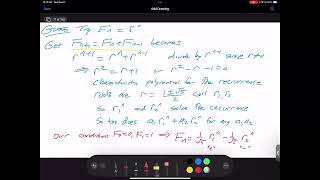 Guess: Try Fn = r^n
Get Fn+1 = Fn + Fn-1 becomes
r^n+1 = r^n + r^n-1 divide by r^n-1 since r≠0
⇒ r² = r+1 or r²-r-1=0
characteristic polynomial for the recurrence
roots are r = 1±√5/2 call r1, r2
So r1^n and r2^n solve the recurrence
So too does a1 r1^n + a2 r2^n for any a1, a2
Our conditions F0=0, F1=1 ⇒ Fn = 1/√5 r1^n - 1/√5 r2^n